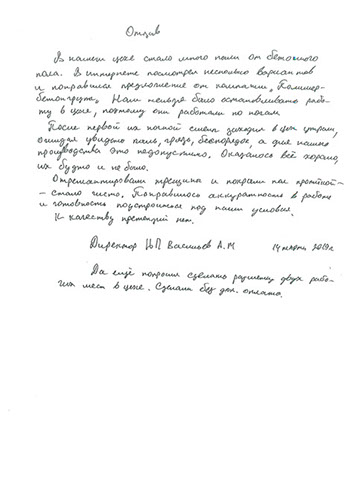 Отзыв
В нашем цехе стало много пыли от бетонного
пола. В интернете посмотрел несколько вариантов
и понравилось предложение от компании „Полимер-
бетонгрупп„ Нам нельзя было останавливать рабо-
ту в цехе, поэтому они работали по ночам.
После первой их ночной смены заходил в цех утром,
ожидал увидеть пыль, грязь, беспорядок, а для нашего
производства это недопустимо. Оказалось всё хорошо,
их будто и не было.
Отремонтировали трещины и покрыли пол пропиткой-
- стало чисто. Понравилась аккуратность в работе
и готовность подстроиться под наши условия.
К качеству претензий нет.
Директор ИП Васильев А.М 14 марта 2019г.
Да ещё попросил сделать разметку двух рабо-
чих мест в цехе. Сделали без доп. оплаты.